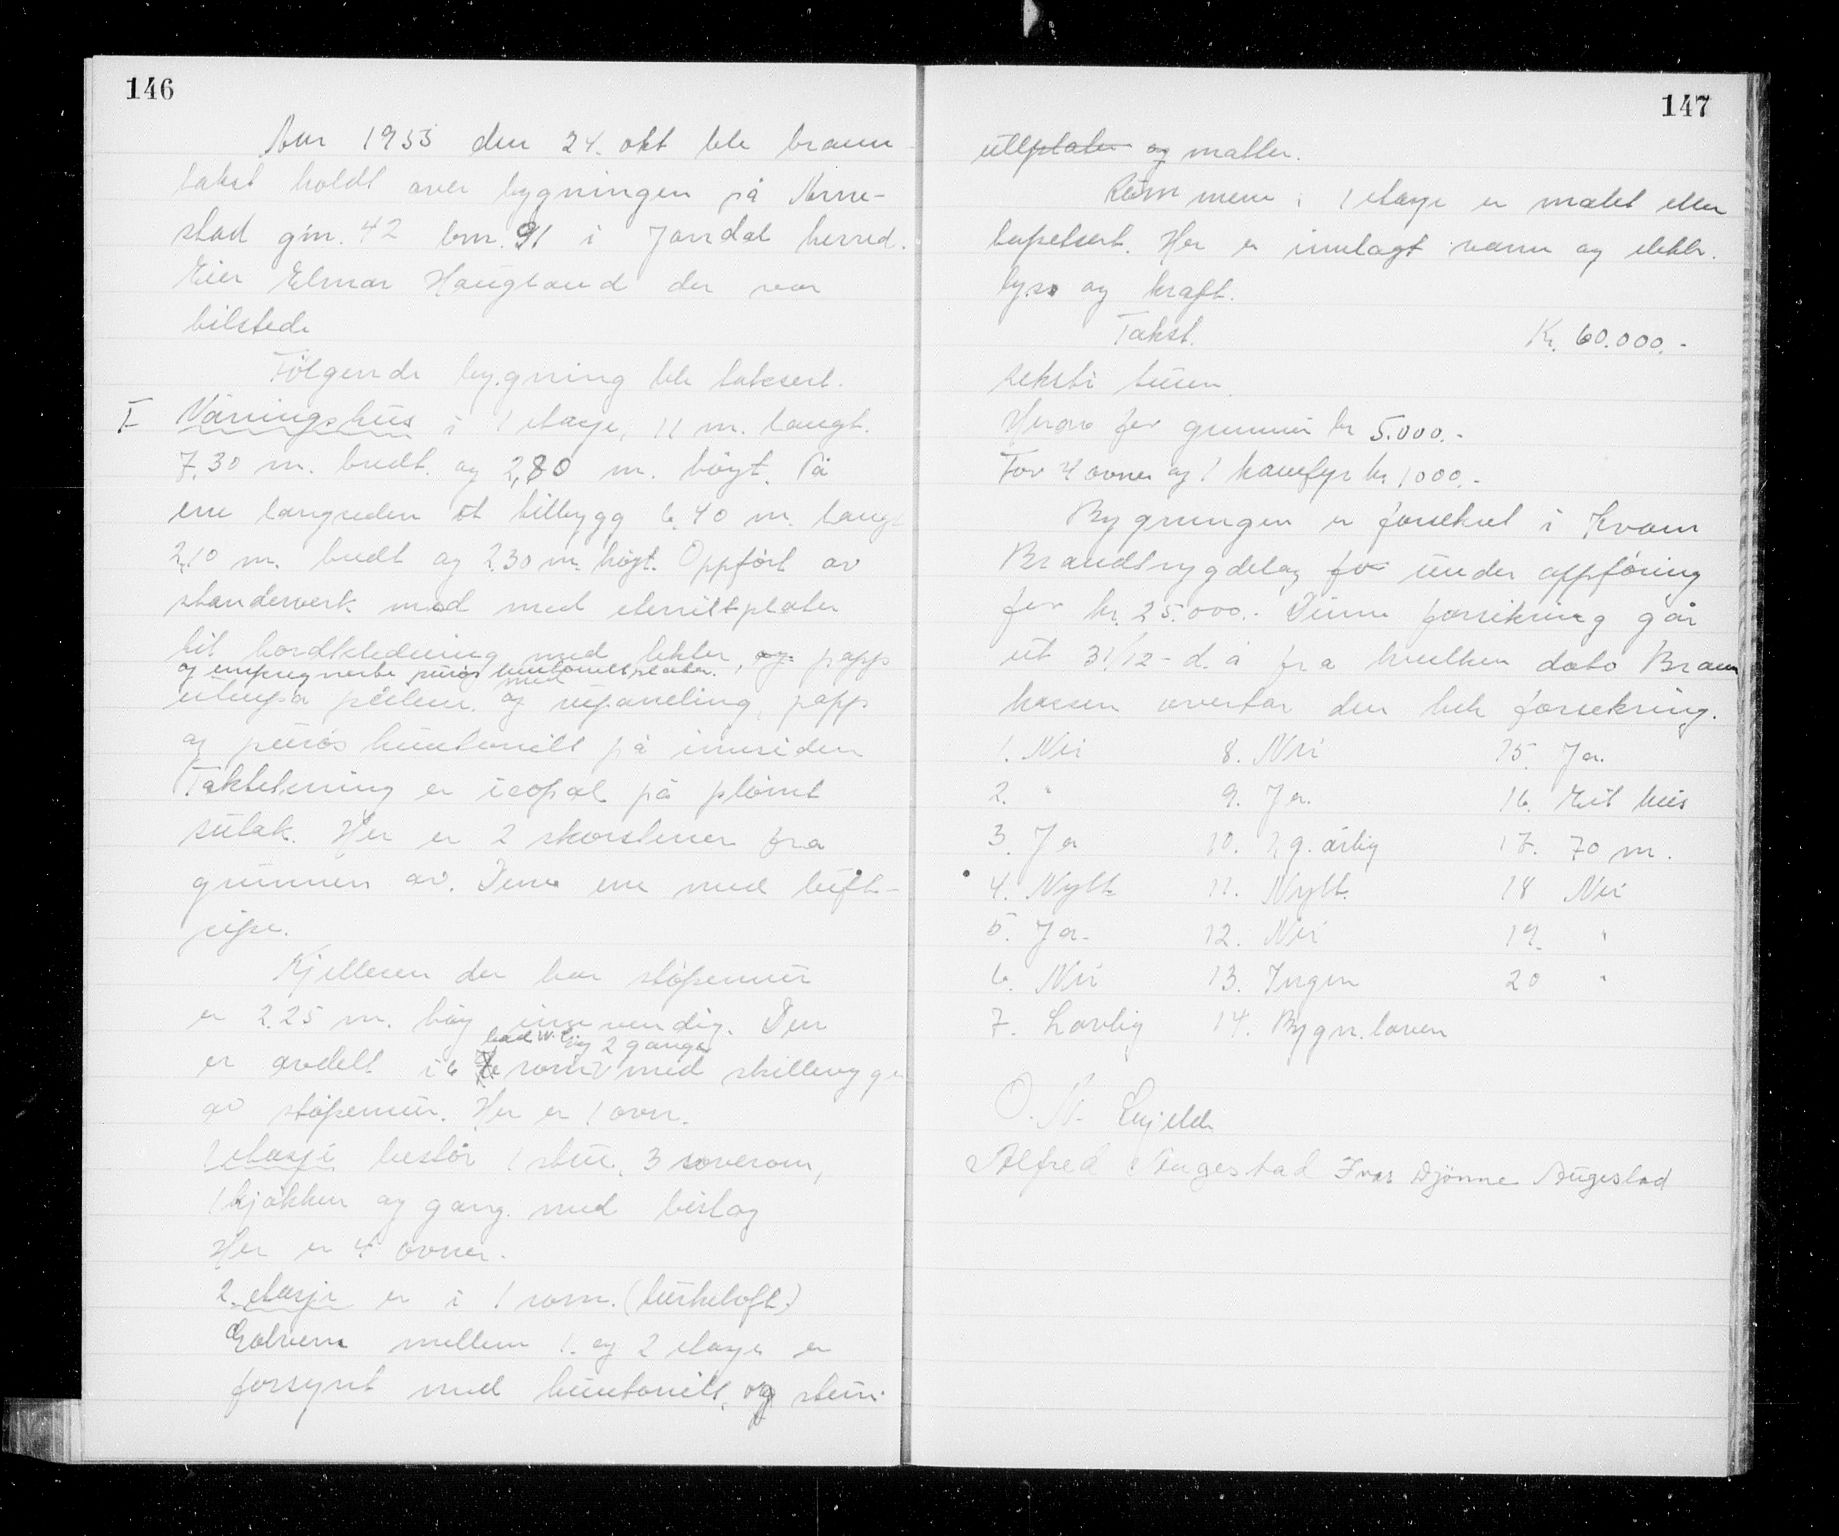 146
Aar 1955 den 24. okt ble brann
takst holdt over bygningen på Arne-
stad gnr. 42 bnr. 91 i Jondal herred.
Eier Elmar Haugland der var
tilstede
Følgende bygning ble taksert.
I Våningshus i 1 etasje, 11 m. langt.
7,30 m. bredt. og 2,80 m. høgt. På
ene langsiden et tilbygg 6,40 m. langt
2,10 m. bredt og 2,30 m. høgt. Oppført av
standerverk med med eternittplater
til bordkledning med lekter, og papp
og impregnerte porøs huntonittplater.
utenpå og med paneling, papp
og porøs huntonitt på innsiden
Taktekning er icopal på pløyet
sutak. Her er 2 skorstener fra
grunnen av. Denne ene med luft-
pipe.
Kjelleren der har støpemur
er 2.25 m. høg innvendig. Den
bad w.c. og 2 ganger
er avdelt i 6 rom med skillevegge
av støpemur. Her er 1 ovn.
1 etasje består 1 stue, 3 soverom,
1 kjøkken og gang. med bislag
Her er 4 ovner.
2. etasje er i 1 rom. (turkeloft.)
Golvene mellem 1. og 2 etasje er
forsynt med huntonitt, og stein
147
ullplater og matter.
Rommene i 1 etasje er malet eller
tapetsert. Her er innlagt vann og elektr.
lys og kraft.
Takst. Kr. 60.000.-
seksti tusen
Herav for grunnmur kr 5.000.-
For 4 ovner og 1 komfyr kr. 1000.-
Bygningen er forsikret i Kvam
Brandtrygdelag for under oppføring
for kr. 25.000.- Denne forsikring går
ut 31/12- d. å fra hvilken dato Brann
kassen overtar den hele forsikring.
1. Nei 8. Nei 15. Ja.
2. " 9. Ja. 16. Eit hus
3. Ja 10. 2 g. årlig 17. 70 m.
4. Nytt 11. Nytt. 18 Nei
5. Ja. 12. Nei 19. "
6. Nei 13. Ingen 20 "
7. Lovlig 14. Bygn. loven
Alfred Augestad Ivar Djønne Augestad